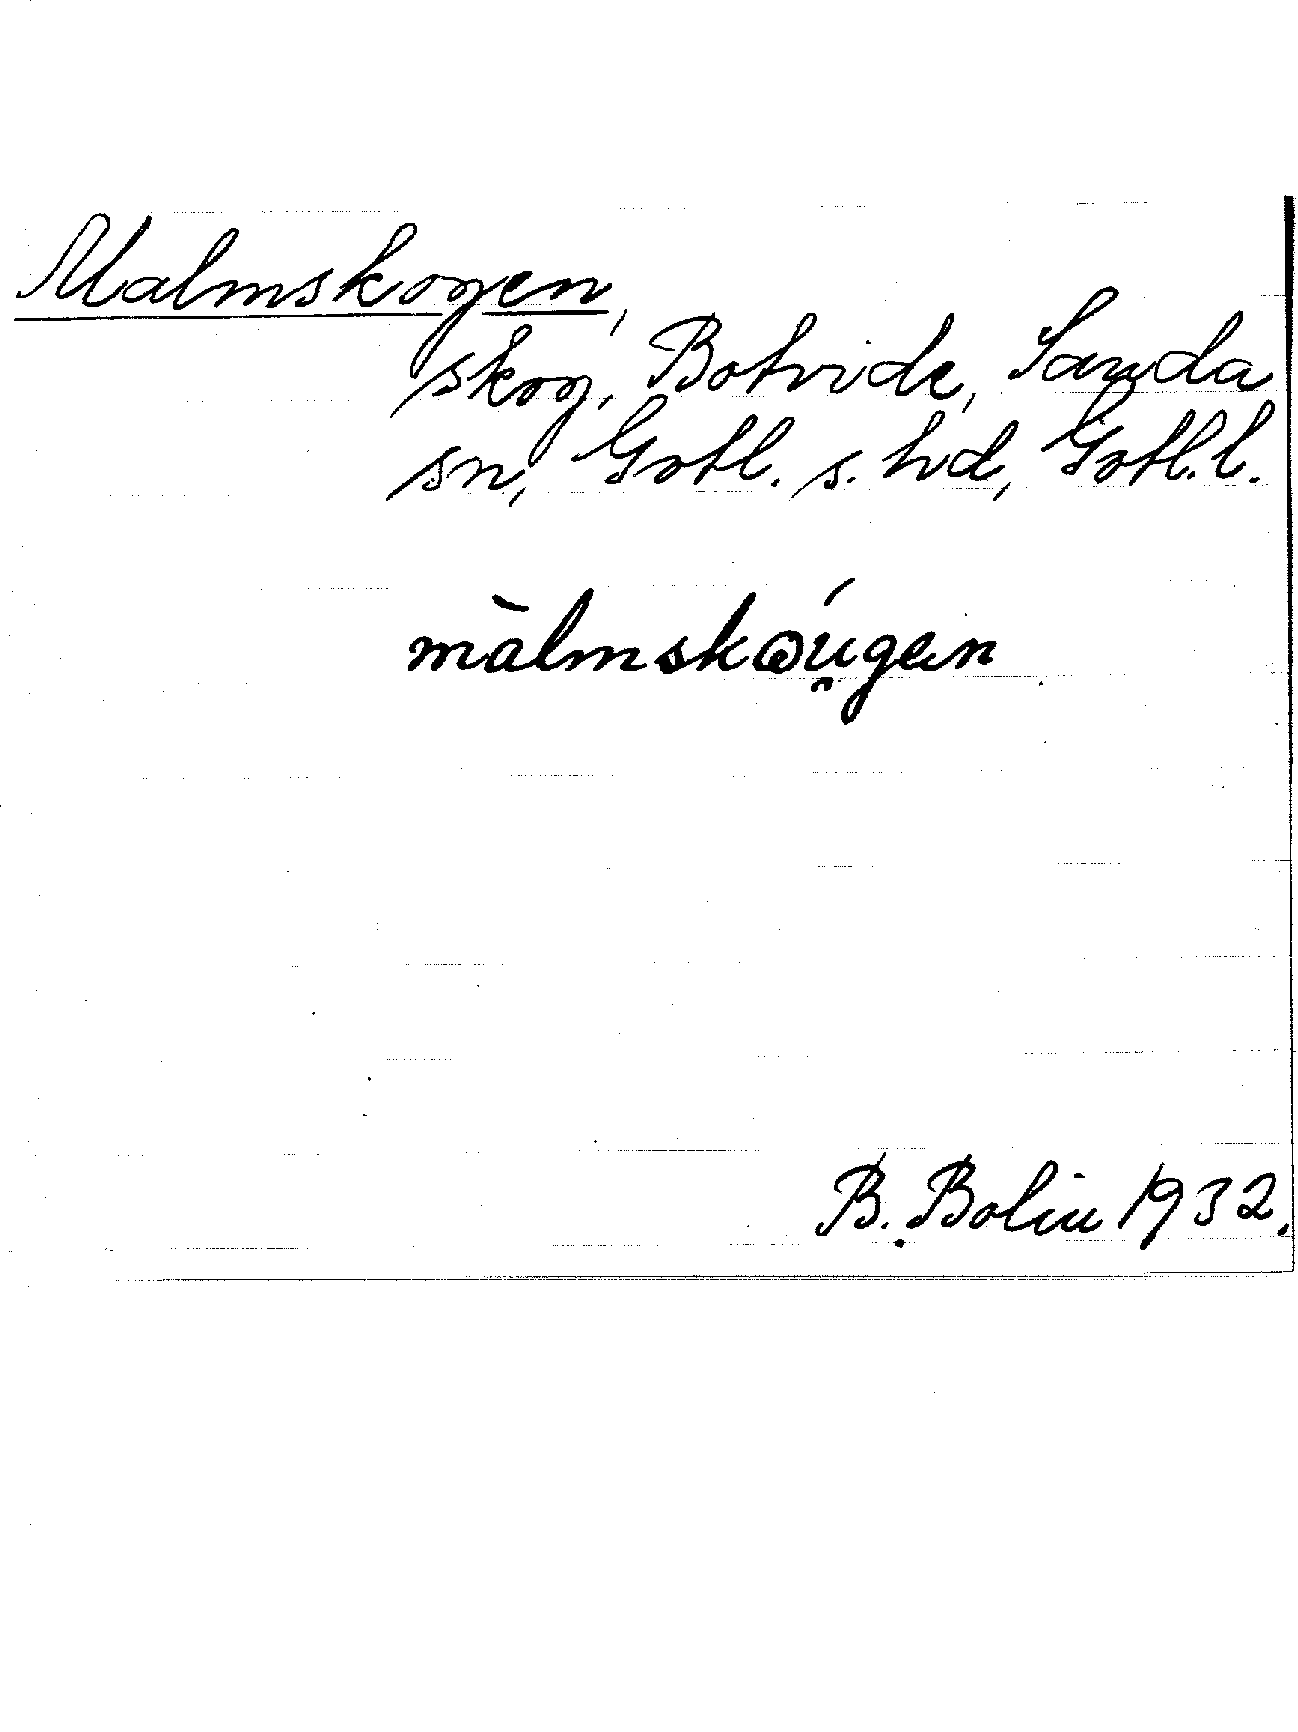 Malmskogen,
skog, Botvide, Sanda
sn, Gotl. s. hd, Gotl. l.
màlmskǫú̯gen
B. Bolin 1932.